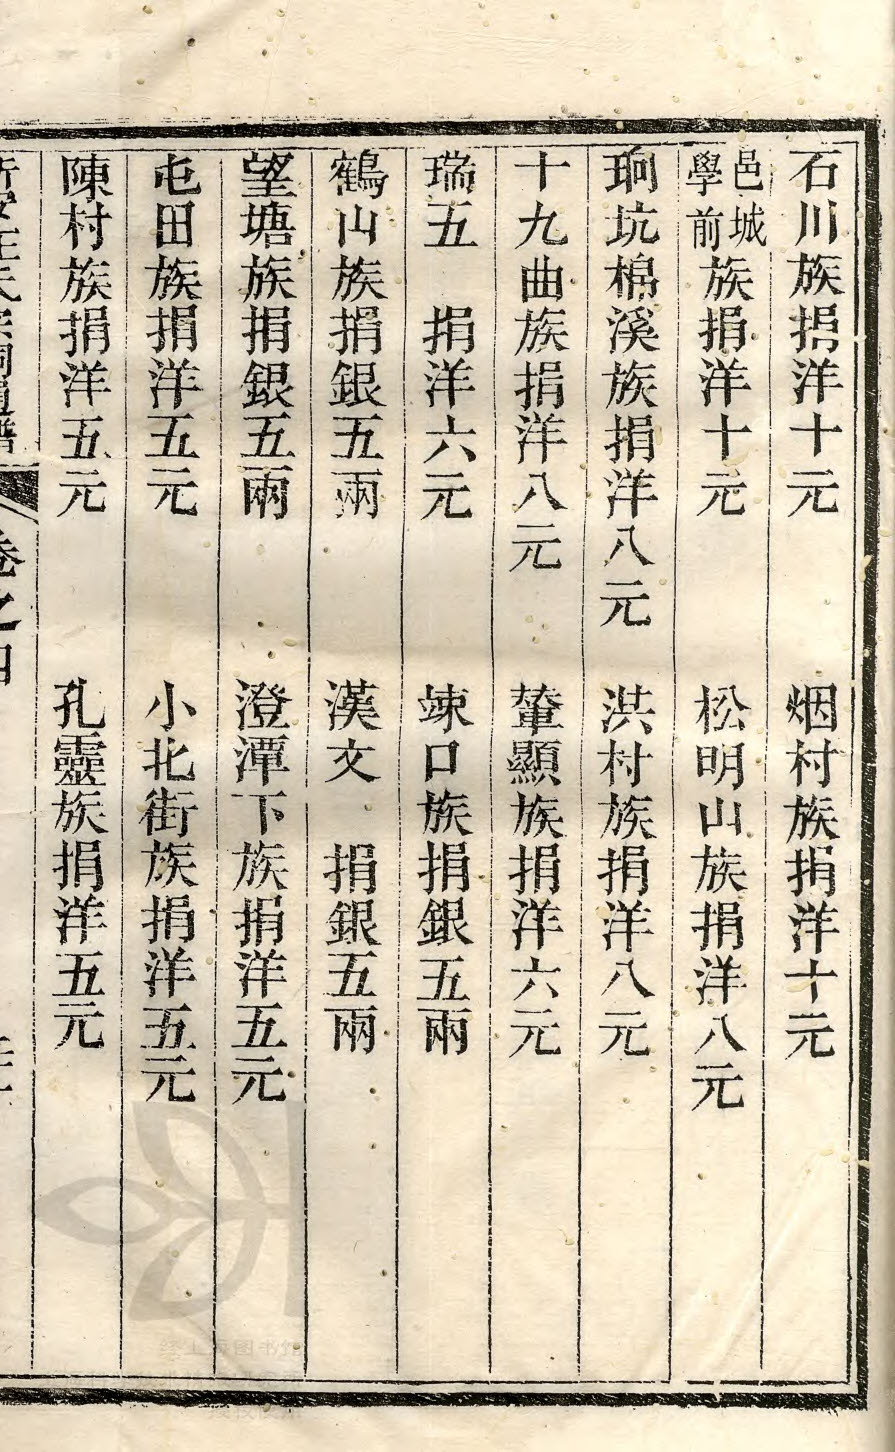 石川族捐洋十元　烟村族捐洋十元
邑城學前族捐洋十元　松明山族捐洋八元
珦坑棉溪族捐洋八元　洪村族捐洋八元
十九曲族捐洋八元　輦顯族捐洋六元
瑞五　捐洋六元　竦口族捐銀五兩
鶴山族捐銀五兩　漢文　捐銀五兩
望塘族捐銀五兩　澄潭下族捐洋五元
屯田族捐洋五元　小北街族捐洋五元
陳村族捐洋五元　孔靈族捐洋五元
卷之四